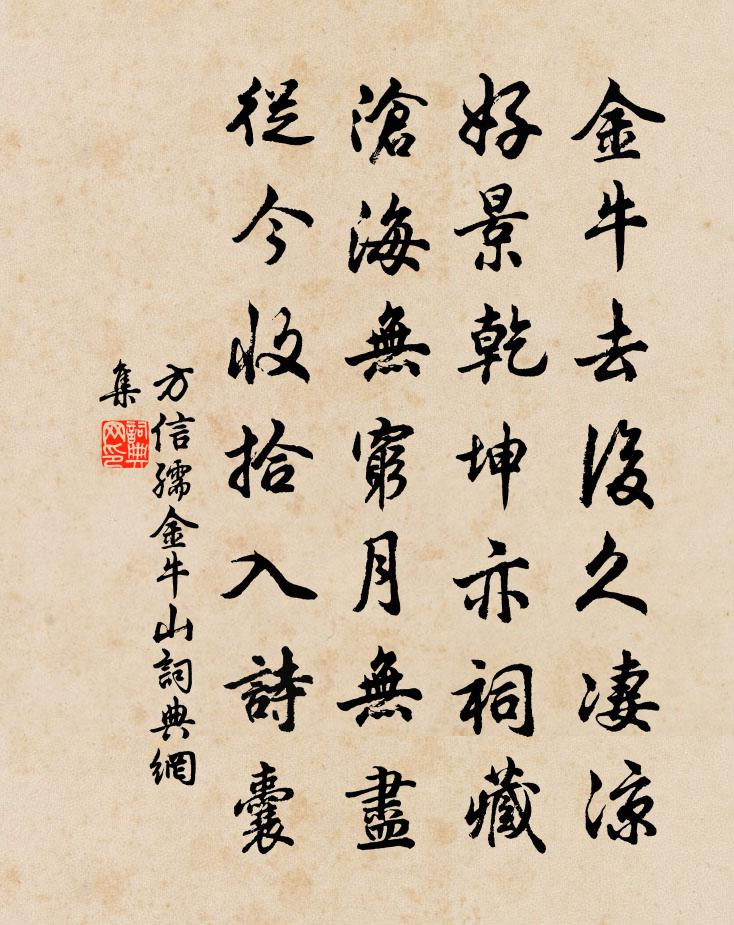 金牛去後久凄涼
好景乾坤亦祠藏
滄海無窮月無盡
從今收拾入詩囊
方信孺金牛山詞典網
集
詞典
网印